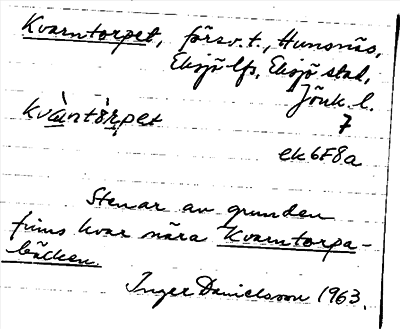 Kvarntorpet, försv.t., Hunsnäs,
Eksjö lfs, Eksjö stad,
Jönk. l.
7
kvàntårpet
ek 6F8a
Stenar av grunden
finns kvar nära Kvarntorpa-
bäcken.
Inger Danielsson 1963.